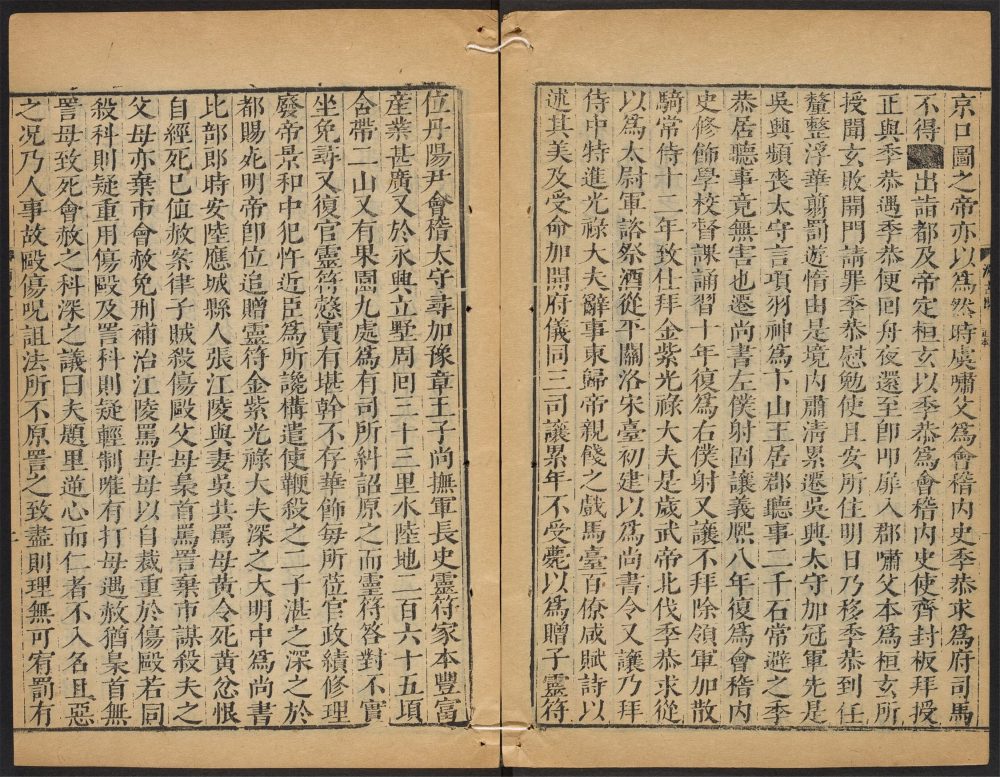 京口圖之帝亦以爲然時虞嘯父爲會稽内史季恭求爲府司馬
不得出詣都及帝定桓玄以季恭爲會稽内史使齊封板拜授
正與季恭遇季恭便回舟夜還至卽叩扉入郡嘯父本爲桓玄所
授聞玄敗開門請罪季恭慰勉使且安所住明日乃移季恭到任
釐整浮華翦罰遊惰由是境内肅清累遷吳興太守加冠軍先是
吳興頻喪太守言項羽神爲卞山王居郡聽事二千石常避之季
恭居聽事竟無害也遷尚書左僕射固讓義熙八年復爲會稽内
史修飾學校督課誦習十年復爲右僕射又讓不拜除領軍加散
騎常侍十二年致仕拜金紫光祿大夫是歲武帝北伐季恭求從
以爲太尉軍諮祭酒從平關洛宋臺初建以爲尚書令又讓乃拜
侍中特進光祿大夫辭事東歸帝親餞之戲馬臺百僚咸賦詩以
述其美及受命加開府儀同三司讓累年不受薨以爲贈子靈符
位丹陽尹會稽太守尋加豫章王子尚撫軍長史靈符家本豐富
産業甚廣又於永興立墅周回三十三里水陸地二百六十五頃
含帶二山又有果園九處爲有司所糾詔原之而靈符答對不實
坐免尋又復官靈符慤實有堪幹不存華飾每所莅官政績修理
廢帝景和中犯忤近臣爲所讒構遣使鞭殺之二子湛之深之於
都賜死明帝卽位追贈靈符金紫光祿大夫深之大明中爲尚書
比部郎時安陸應城縣人張江陵與妻吳共罵母黃令死黃忿恨
自經死已値赦案律子賊殺傷毆父母梟首罵詈棄市謀殺夫之
父母亦棄市會赦免刑補冶江陵罵母母以自裁重於傷毆若同
殺科則疑重用傷毆及詈科則疑輕制唯有打母遇赦猶梟首無
詈母致死會赦之科深之議曰夫題里逆心而仁者不入名且惡
之况乃人事故毆傷呪詛法所不原詈之致盡則理無可宥罰有